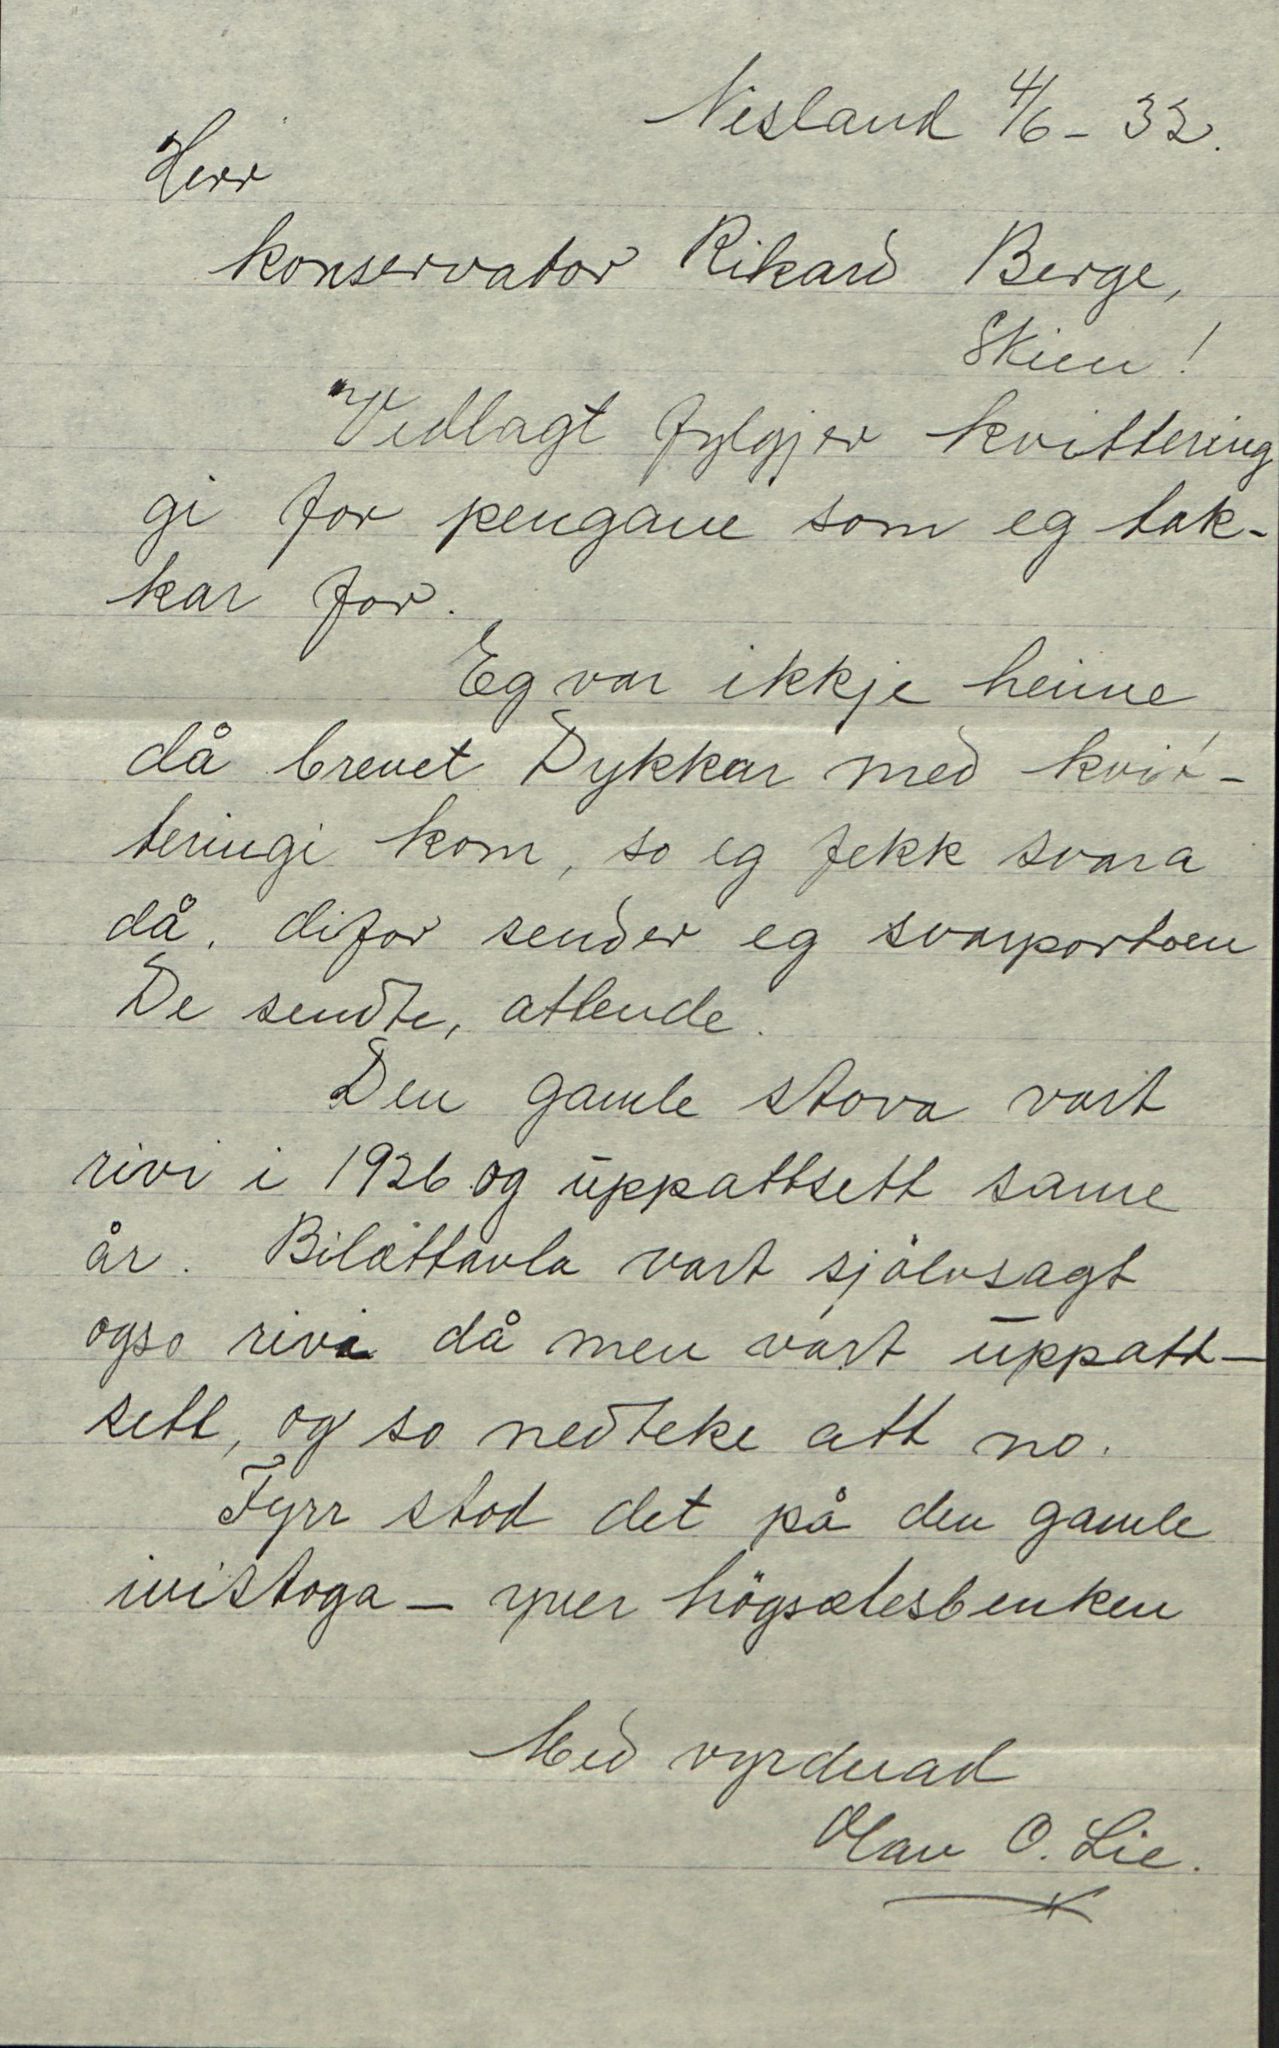 Nesland 4/6 - 32.
Herr
konservator Rikard Berge,
Skien!
Vedlagt fylgjer kvittering
gi for pengane som eg tak-
kar for.
Eg var ikkje heime
då brevet Dykkar med kvit-
teringi kom, so eg fekk svara
då, difor sender eg svarportoen
De sendte, attende.
Den gamle stova vart
rivi i 1926 og uppattsett same
år. Bilættavla vart sjölvsagt
ogso rivi då men vart uppatt-
sett, og so nedteke att no.
Fyrr stod det på den gamle
inistoga - yver högsætesbenken
Med vyrdnad
Olav O. Lie.